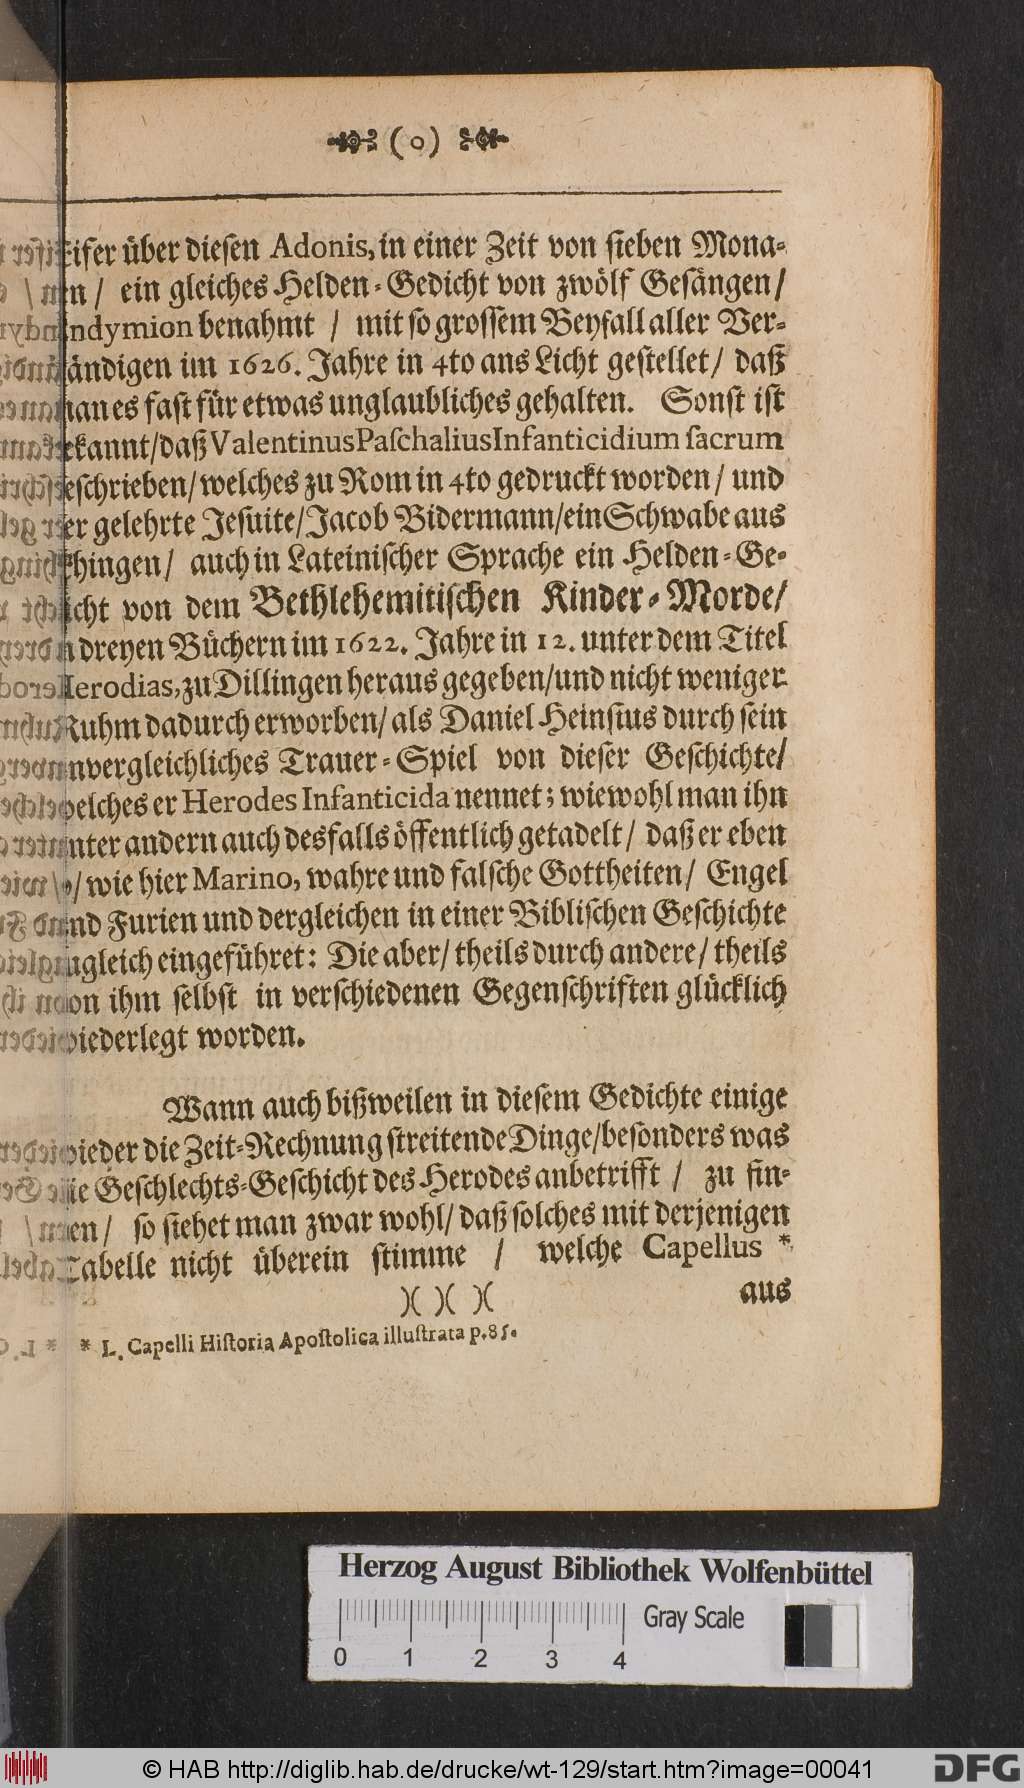 (o)
Eifer über dieſen Adonis, in einer Zeit von ſieben Mona-
en / ein gleiches Helden-Gedicht von zwölf Geſängen /
Endymion benahmt / mit ſo groſſem Beyfall aller Ver-
ändigen im 1626. Jahre in 4to ans Licht geſtellet / daß
man es faſt für etwas unglaubliches gehalten. Sonſt iſt
ekannt / daß Valentinus Paſchalius Infanticidium ſacrum
eſchrieben / welches zu Rom in 4to gedruckt worden / und
er gelehrte Jeſuite / Jacob Bidermann / ein Schwabe aus
hingen / auch in Lateiniſcher Sprache ein Helden-Ge-
icht von dem Bethlehemitiſchen Kinder-Morde /
n dreyen Büchern im 1622. Jahre in 12. unter dem Titel
Herodias, zu Dillingen heraus gegeben / und nicht weniger
Ruhm dadurch erworben / als Daniel Heinſius durch ſein
unvergleichliches Trauer-Spiel von dieſer Geſchichte /
welches er Herodes Infanticida nennet; wiewohl man ihn
unter andern auch desfalls öffentlich getadelt / daß er eben
o / wie hier Marino, wahre und falſche Gottheiten / Engel
und Furien und dergleichen in einer Bibliſchen Geſchichte
zugleich eingeführet: Die aber / theils durch andere / theils
von ihm ſelbſt in verſchiedenen Gegenſchriften glücklich
wiederlegt worden.
Wann auch bißweilen in dieſem Gedichte einige
wieder die Zeit-Rechnung ſtreitende Dinge / beſonders was
die Geſchlechts-Geſchicht des Herodes anbetrifft / zu fin-
en / ſo ſiehet man zwar wohl / daß ſolches mit derjenigen
Tabelle nicht überein ſtimme / welche Capellus *
)( )( )( aus
* L. Capelli Hiſtoria Apoſtolica illuſtrata p. 85.
Herzog August Bibliothek Wolfenbüttel
Gray Scale
0 1 2 3 4
© HAB http://diglib.hab.de/drucke/wt-129/start.htm?image=00041
DFG